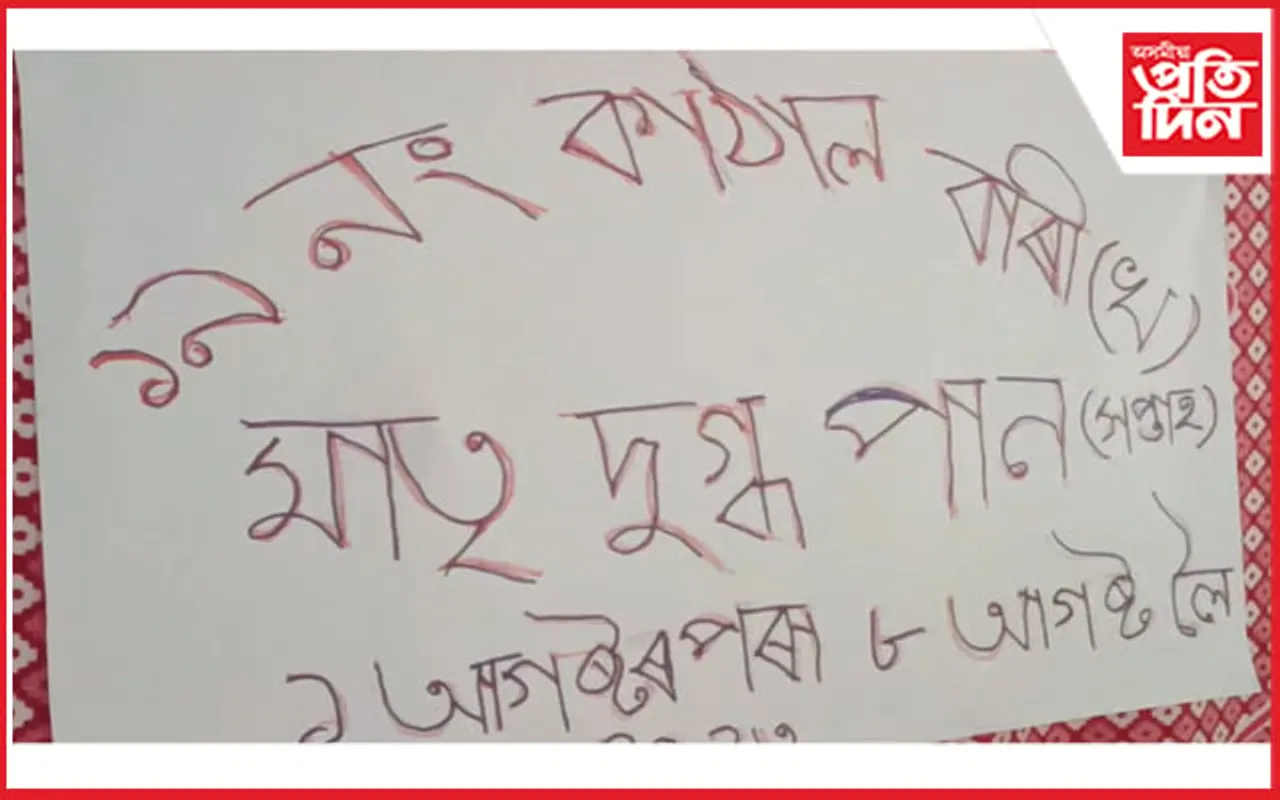 অসমীয়া
প্ৰতি
দিন
নং কাঠাল বাৰী (খ)
মাতৃ দুগ্ধ পান (সপ্তাহ)
১ আগষ্টৰপৰা ৮ আগষ্ট লৈ